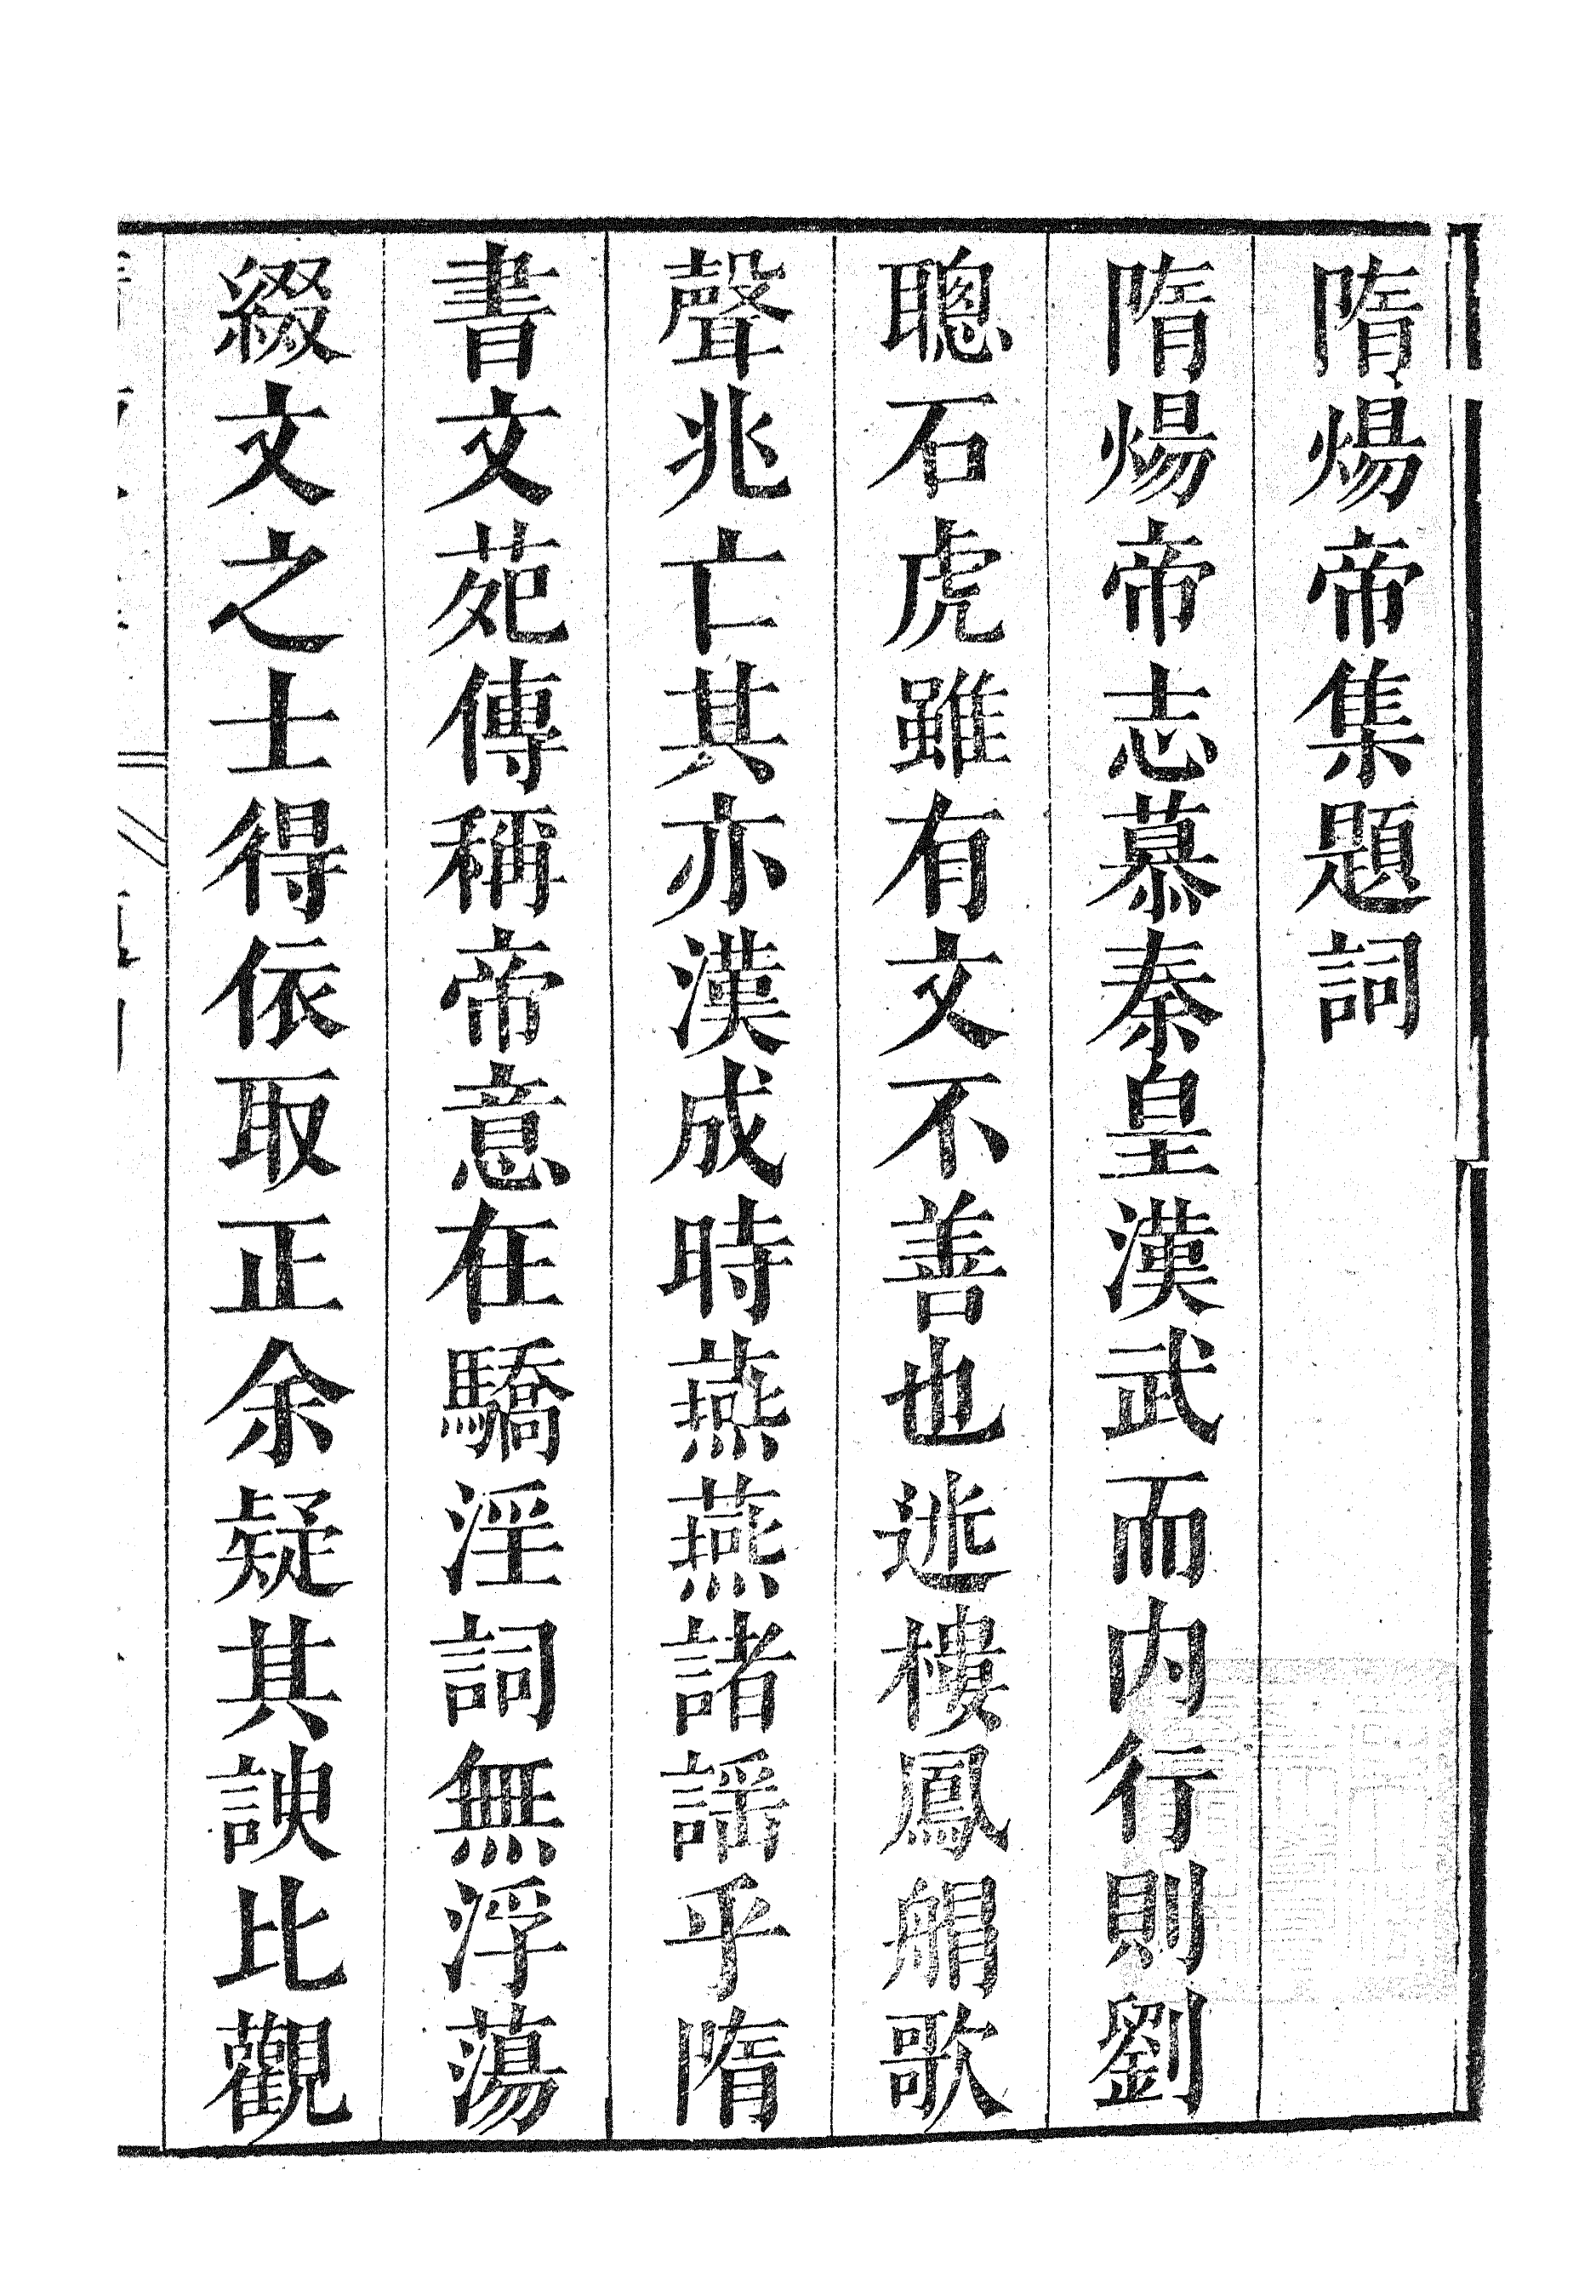 隋煬帝集題詞
隋煬帝志慕秦皇漢武而内行則劉
聰石虎雖有文不善也迷樓鳳䑏歌
聲兆亡其亦漢成時燕燕諸謡乎隋
書文苑傳稱帝意在驕淫詞無浮蕩
綴文之士得依取正余疑其諛比觀